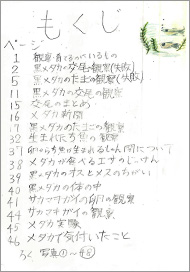 もくじ
ページ
1 観察・育てるっているもの
2 黒メダカの交尾の観察(失敗)
5 黒メダカのたまごの観察(失敗)
11 黒メダカの交尾の観察
15 交尾のまとめ
16 メダカ新聞
17 黒メダカのたまごの観察
32 生まれた子魚の観察
37 卵から子魚は生まれるしゅん間について
38 メダカが食べるエサのじっけん
39 黒メダカのオスとメスのちがい
40 黒メダカの体の中
41 サカマキガイの卵の観察
44 サカマキガイの観察
45 メダカ実験
46 メダカで気付いたこと
ろく 写真①〜㊺